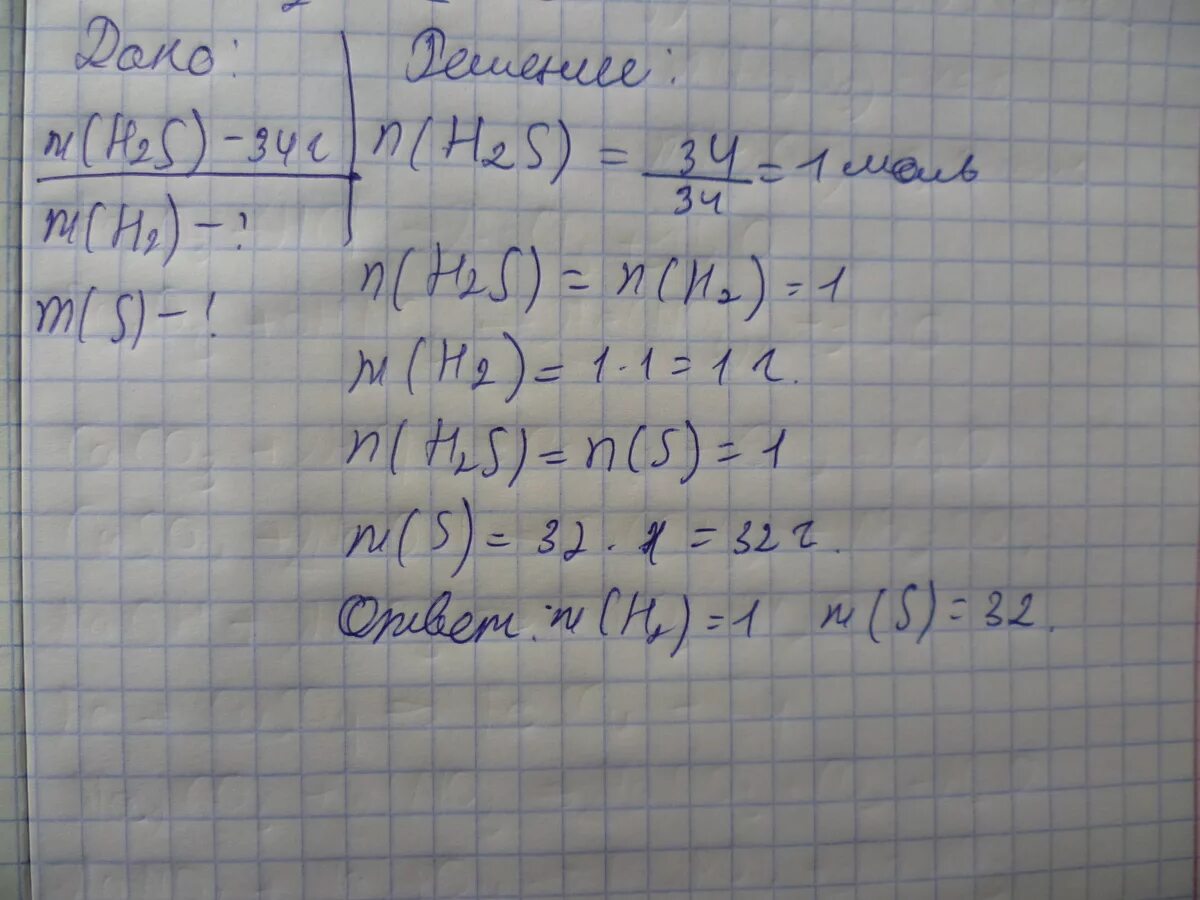 Дано:
m(H₂S) - 34 г
m(H₂) - ?
m(S) - ?
Решение:
n(H₂S) = 34/34 = 1 моль
n(H₂S) = n(H₂) = 1
m(H₂) = 1 · 1 = 1 г.
n(H₂S) = n(S) = 1
m(S) = 32 · 1 = 32 г.
Ответ: m(H₂) = 1 m(S) = 32.